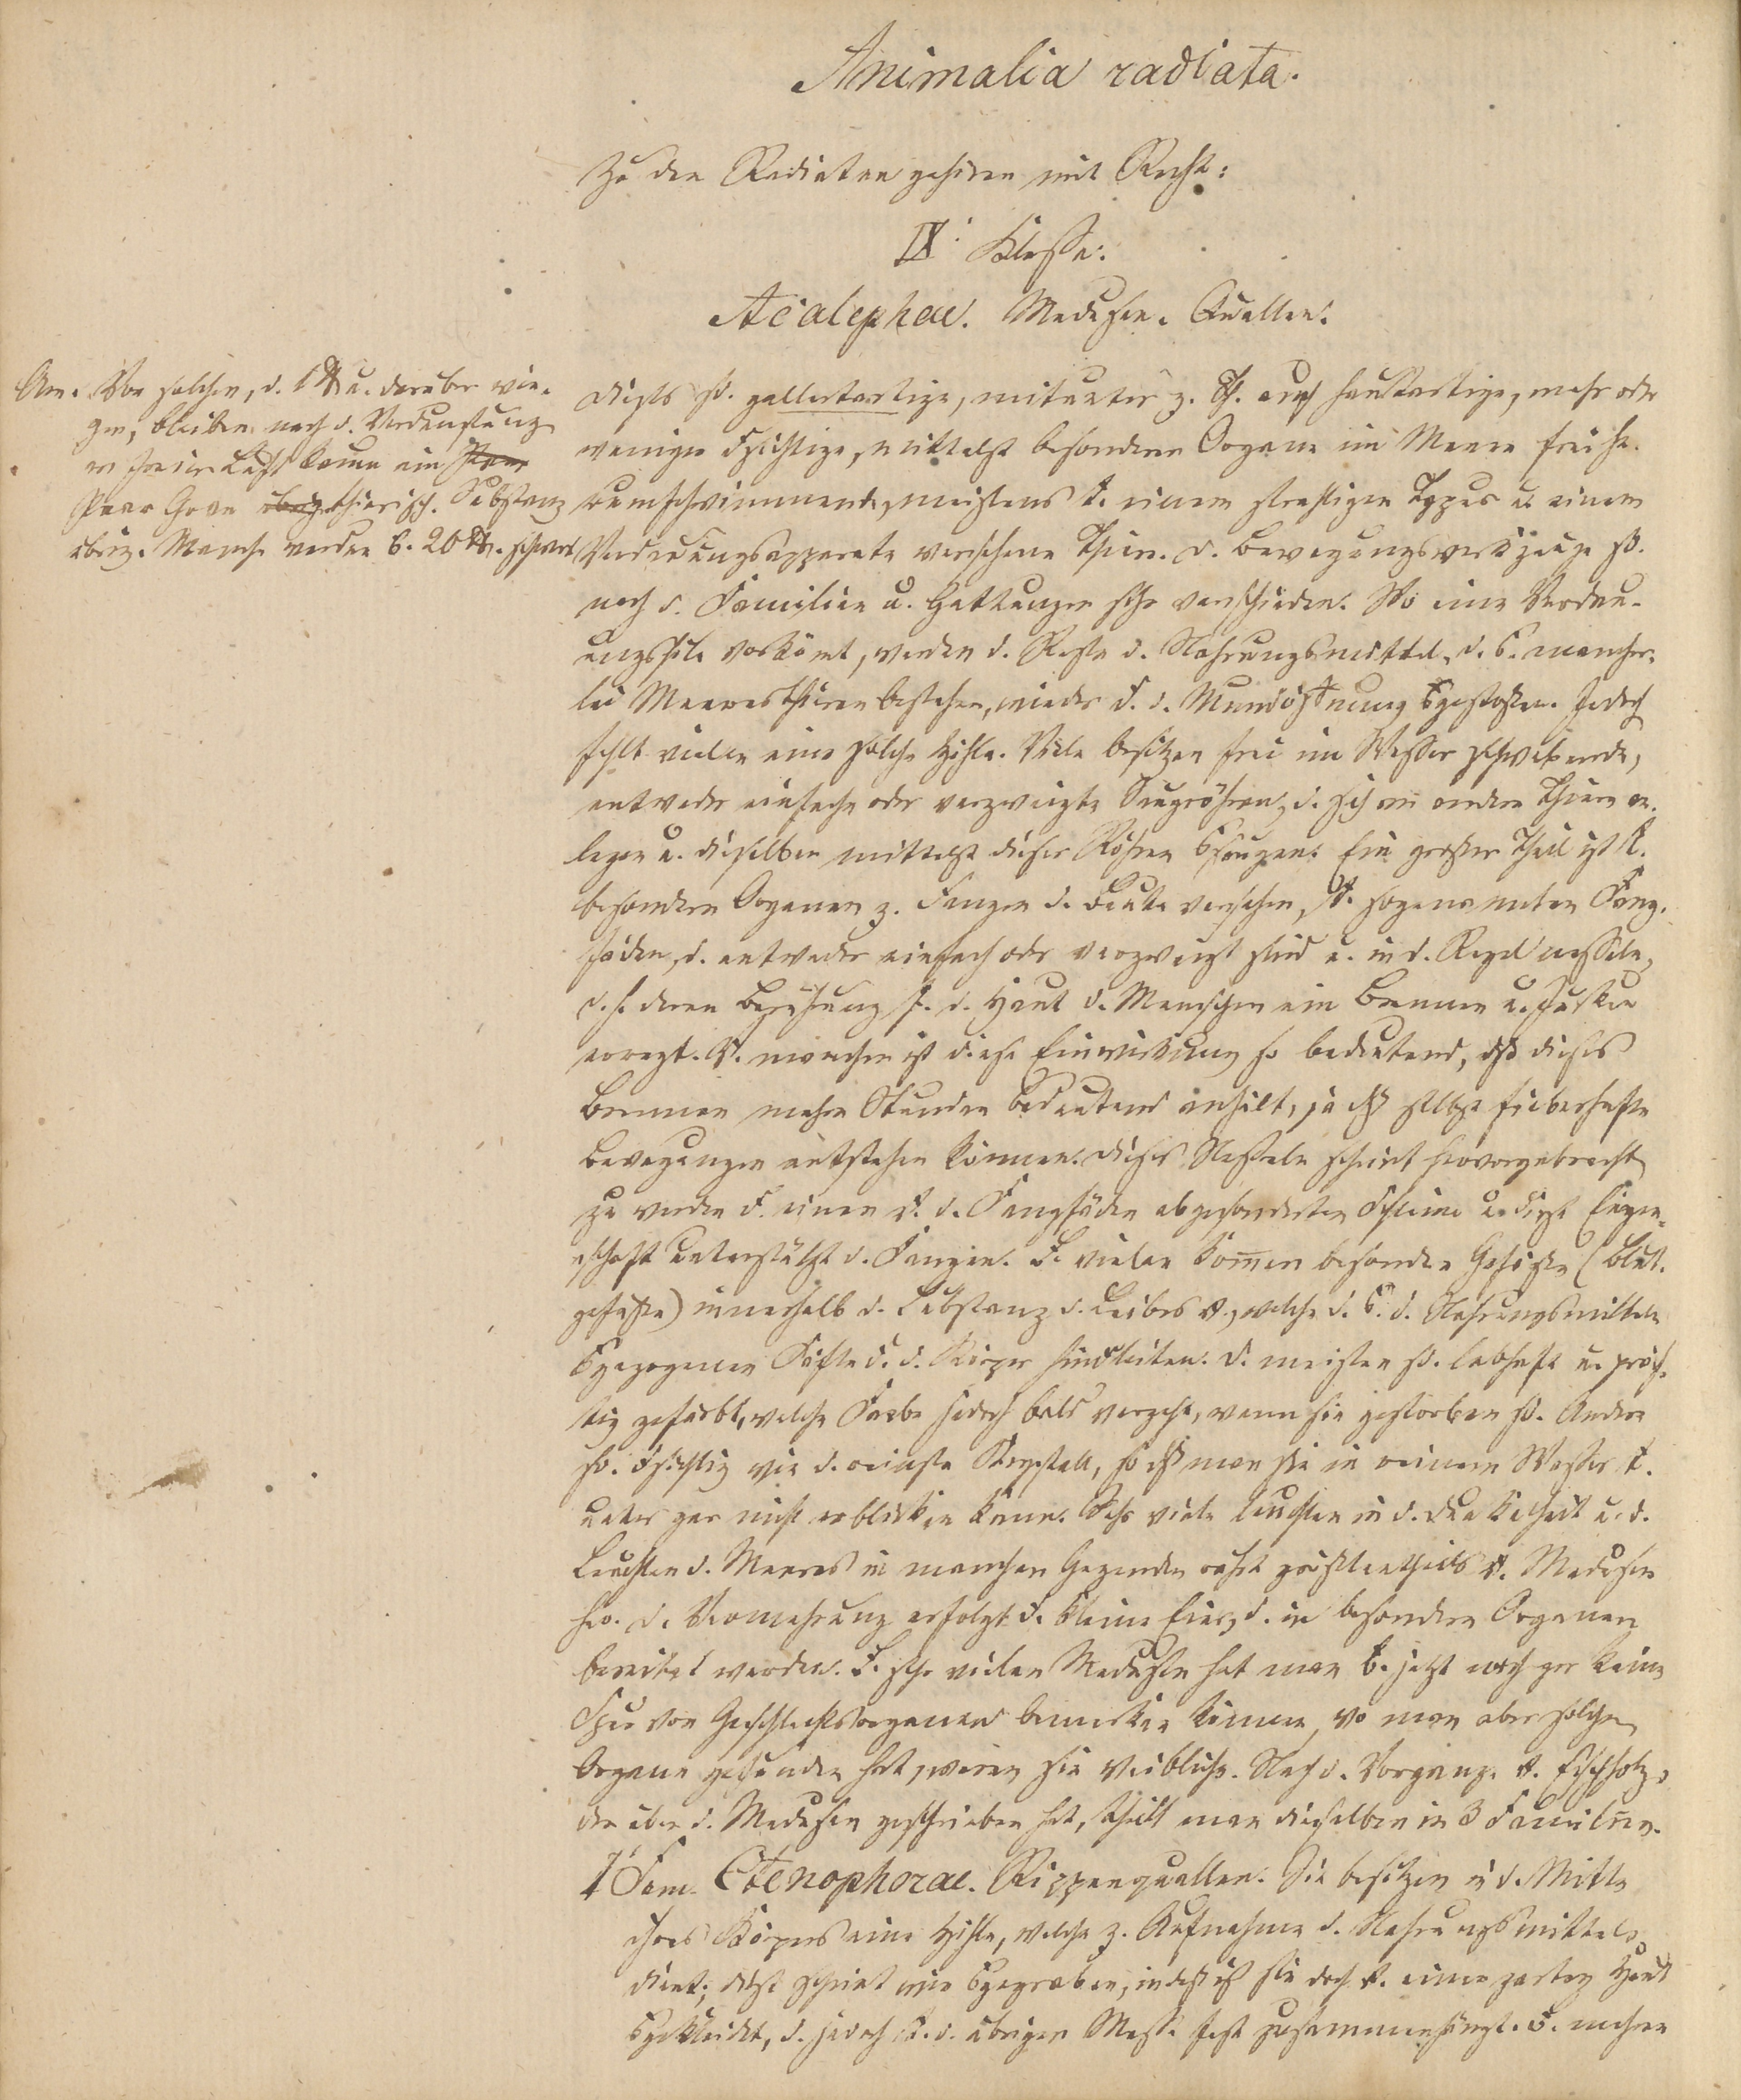 Animalia radiata.
Zu den Radiaten gehören mit Recht:
IX. Klasse:
Acalephae. Medusen. Quallen.
Anm. Von solchen, d. 1 ℔ u. darüber wie-
gen, bleiben nach d. Verdunstung
an freier Luft kaum ein
Paar Gran thierisch. Substanz
übrig. Manche werden b. 20 ℔. schwer
Dieß s. gallertartige, mitunter z. Th. auch hautartige, mehr oder
weniger dsichtige, mittelst besonderer Organe im Meere frei he-
rumschwimmende, meistens t. einem strahligen Typus u. einem
Verdauungsapparate versehene Thiere. D. Bewegungswerkzeuge s.
nach d. Familien u. Gattungen sehr verschieden. Wo eine Verdau-
ungshöle vorkömt, werden d. Reste d. Nahrungsmittel, d. b. mancher-
lei Meeresthieren bestehen, wieder d. d. Mundöffnung gestoßen. Jedoch
fehlt vielen eine solche Höhle. Viele besitzen frei im Wasser schwebende,
entweder einfache oder verzweigte Saugröhren, d. sich an andere Thiere an-
legen u. dieselben mittelst dieser Röhren saugen. Ein großer Theil ist t.
besonderen Organen z. Fangen d. Beute versehen, t. sogenannten Fang-
fäden, d. entweder einfach oder verzweigt sind u. in d. Regel nesseln,
d. h. deren Berührung f. d. Haut d. Menschen ein Brennen u. Jucken
erregt. B. manchen ist diese Einwirkung so bedeutend, dß dieses
Brennen mehre Stunden bedeutend anhält, ja dß selbst fieberhafte
Bewegungen entstehen können. Dieses Nesseln scheint hervorgebracht
zu werden d. einen v. d. Fangfäden abgesonderten Schleim u. diese Eigen-
schaft unterstützt d. Fangen. B. vielen kommen besondere Gefäße (Blut-
gefäße) innerhalb d. Substanz d. Leibes v., welche d. b. d. Nahrungsmitteln
gezogenen Säfte d. d. Körper hindleiten. D. meisten s. lebhaft u. präch-
tig gefärbt, welche Farbe jedoch bald vergeht, wenn sie gestorben s. Andere
s. dsichtig wie d. reinste Krystall, so dß man sie in reinem Wasser t.
unter gar nicht erblicken kann. Sehr viele leuchten in d. Dunkelheit u. d.
Leuchten d. Meeres in manchen Gegenden rührt größtentheils v. Medusen
her. D. Vermehrung erfolgt d. kleine Eier, d. in besonderen Organen
bereitet werden. B. sehr vielen Medusen hat man b. jetzt noch gar keine
Spur von Geschlechtsorganen bemerken können, wo man aber solche
Organe gefunden hat, waren sie weibliche. Nach d. Vorgang v. Eschholz,
der über d. Medusen geschrieben hat, theilt man dieselben in 3 Familien.
1. Fam. Ctenophorae. Rippenquallen. Sie besitzen in d. Mitte
ihres Körpers eine Höhle, welche z. Aufnahme d. Nahrungsmittels
dient; diese scheint wie gegraben, indeß ist sie doch t. einer zarten Haut
gekleidet, d. jedoch t. d. übrigen Masse fest zusammenhängt. B. mehren